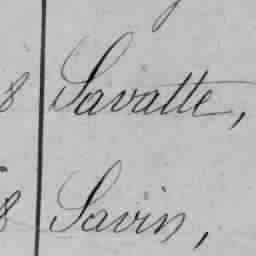 8 Savatte,
8 Savin,